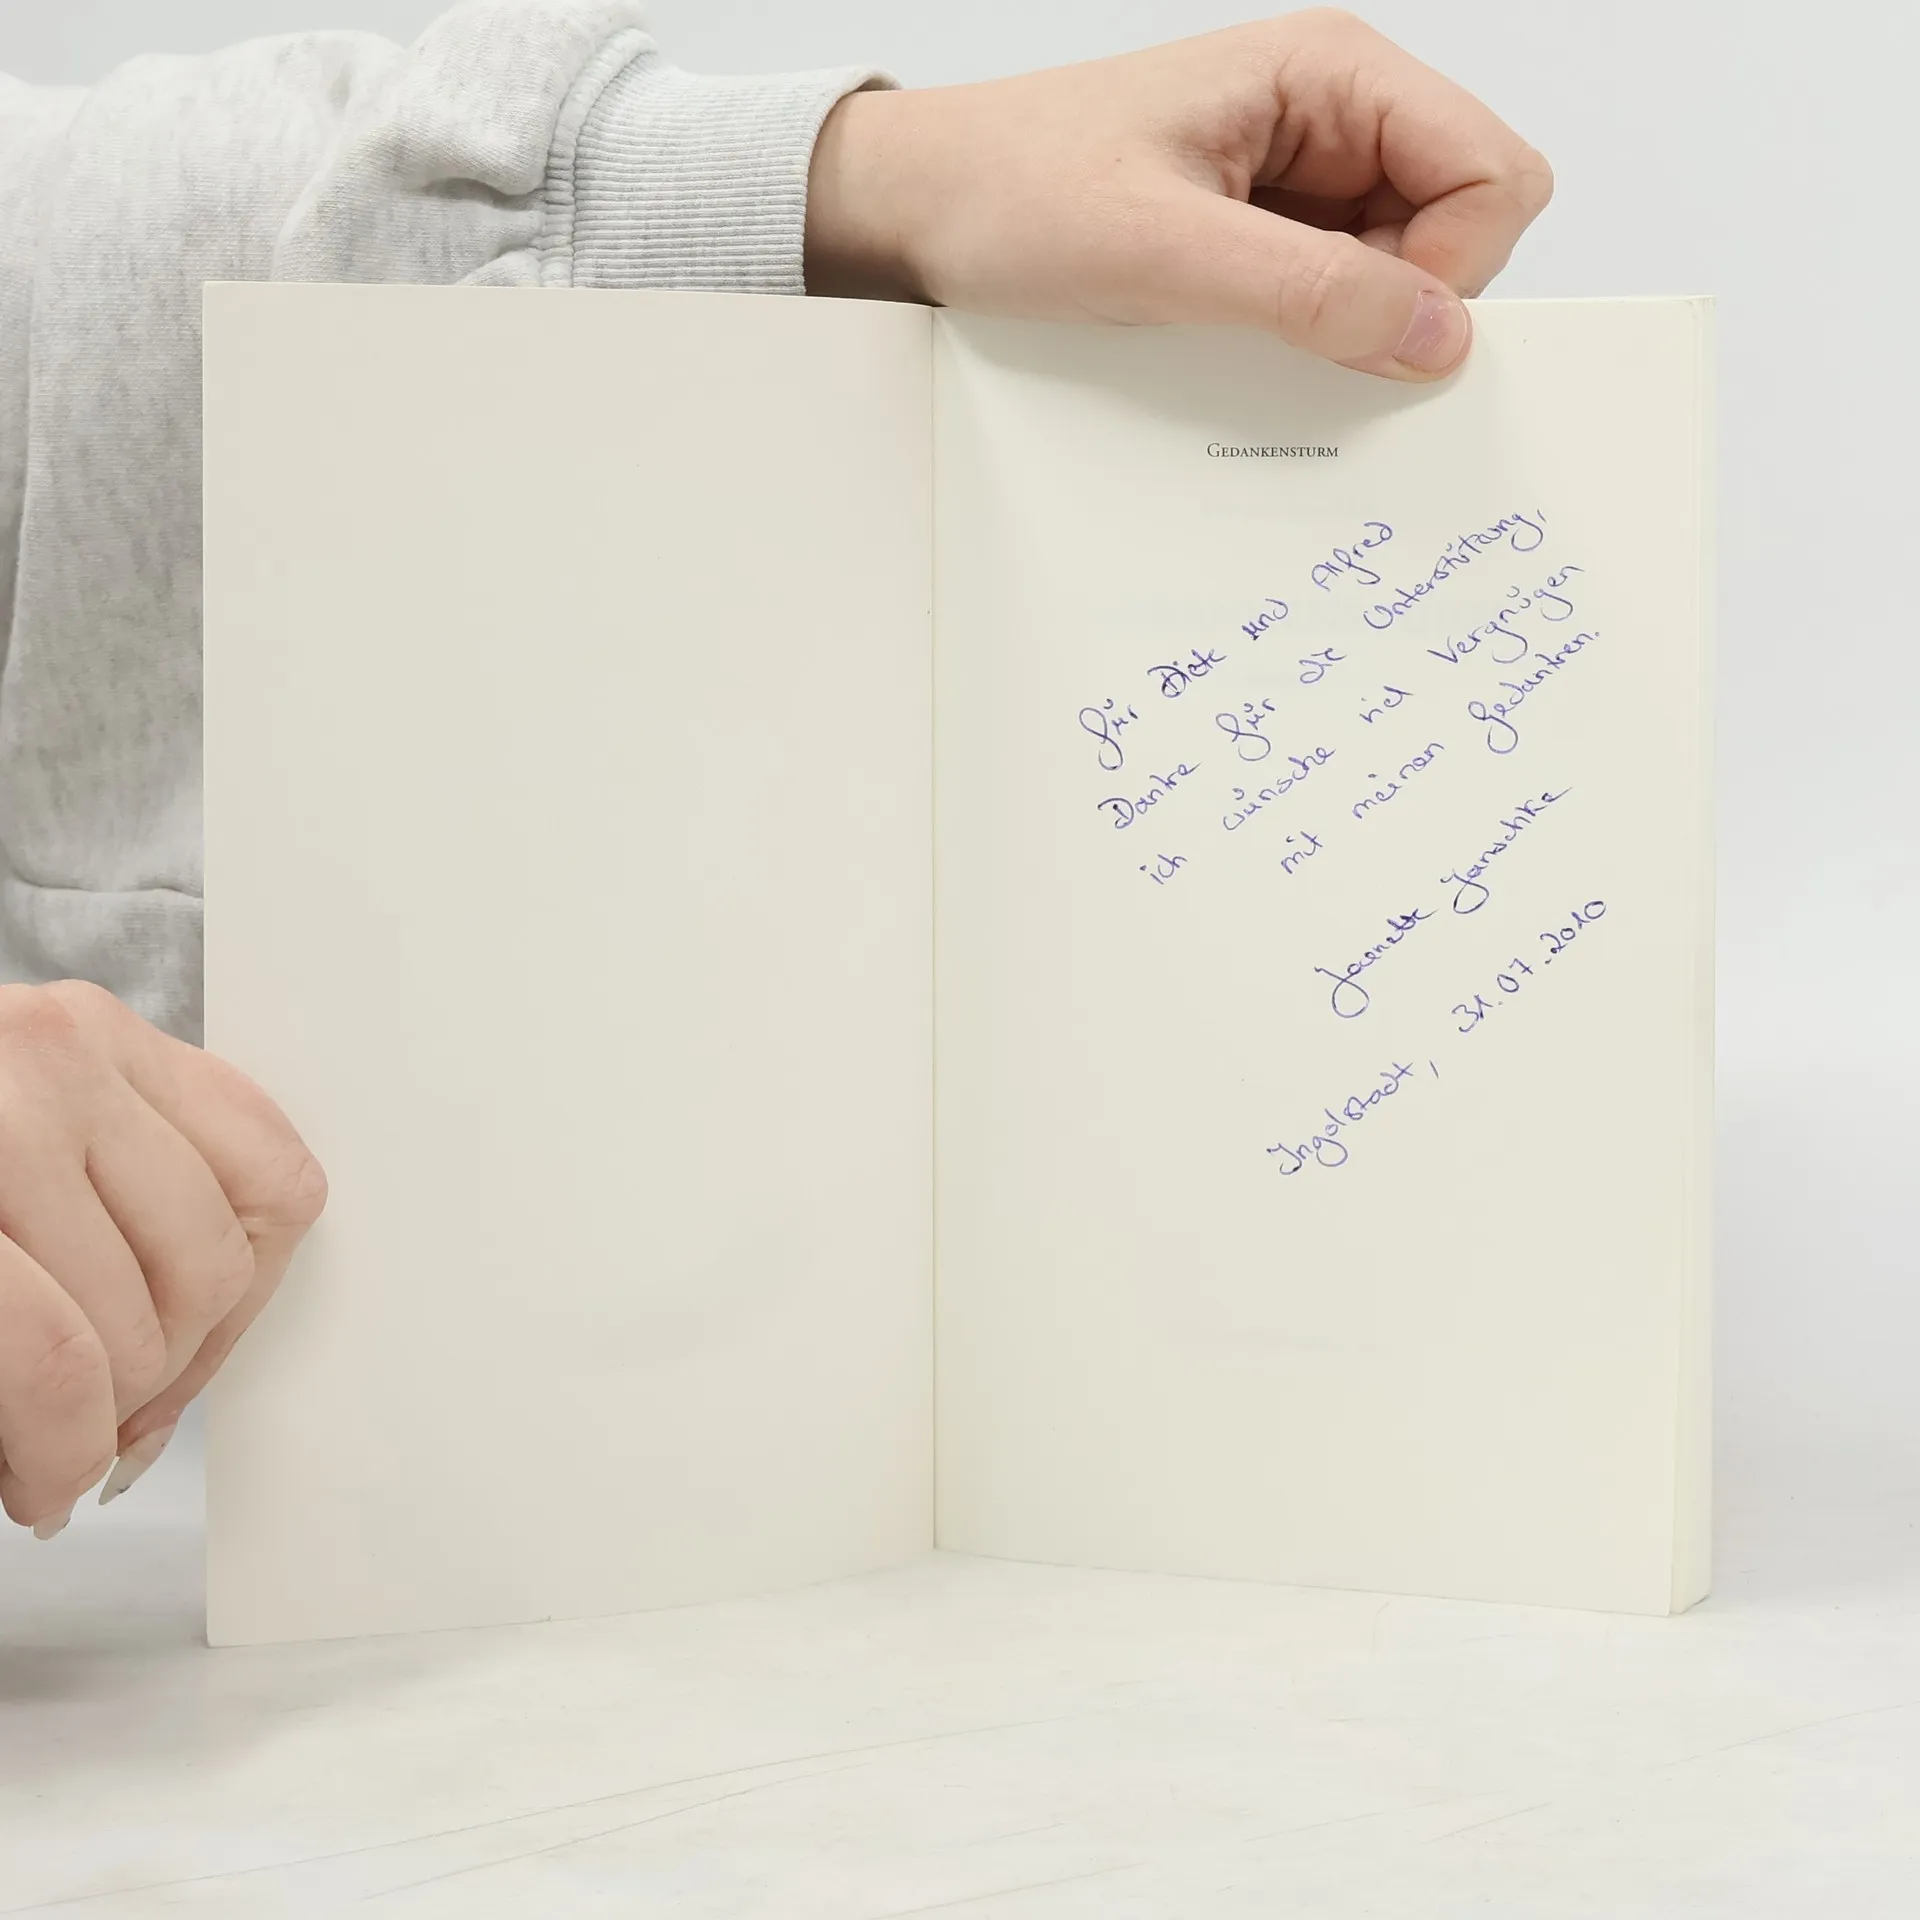 GEDANKENSTURM
Für Diete und Alfred
Danke für die Unterstützung,
ich wünsche viel Vergnügen
mit meinen Gedanken.
Jeanette Janschke
Ingolstadt, 31.07.2010